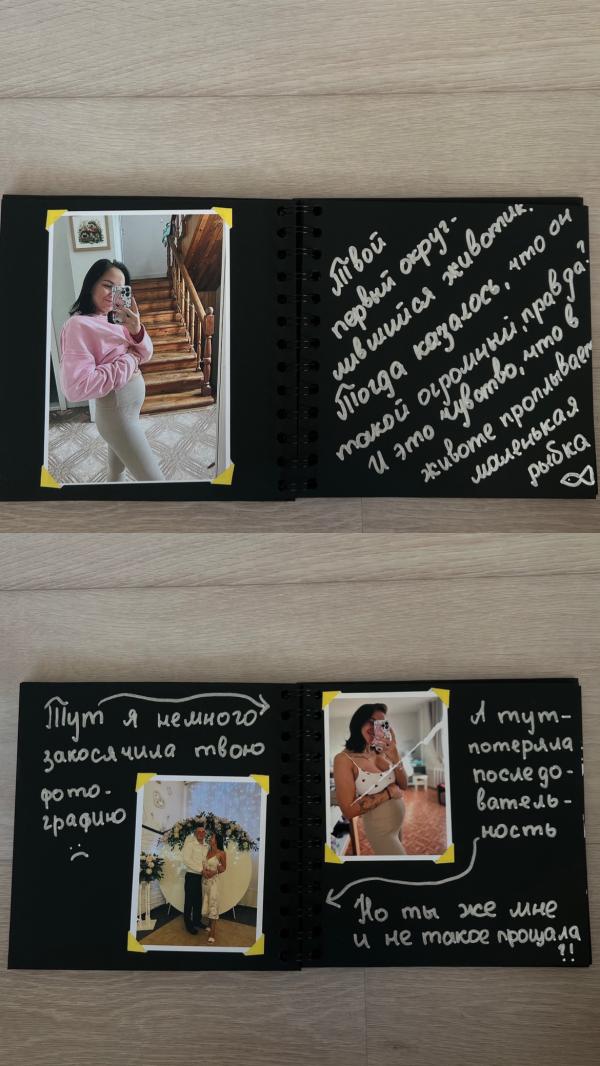 Твой
первый округ-
лившийся животик.
Тогда казалось, что он
такой огромный, правда?
И это чувство, что в
животе проплывает
маленькая
рыбка
Тут я немного
закосячила твою
фото-
графию
А тут-
потеряла
последо-
ватель-
ность
Но ты же мне
и не такое прощала
?!